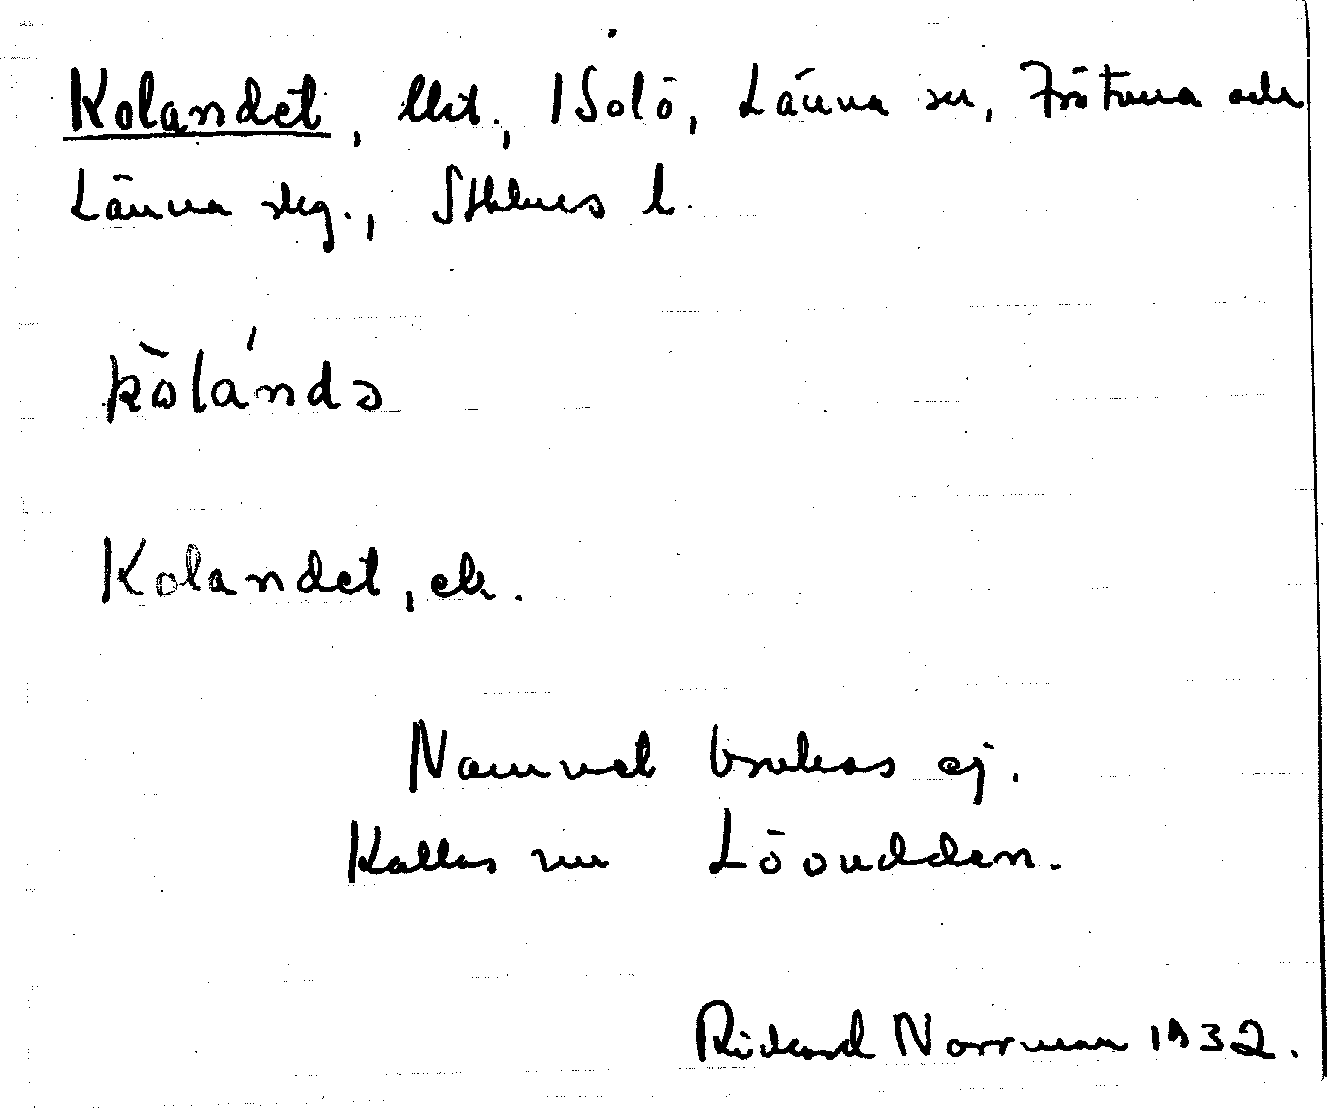 Kolandet, llit., Isolö, Länna sn, Frötuna och
Länna skg., Sthlms l.
kòlándə
Kolandet, ek.
Namnet brukas ej.
Kallas nu Löoudden.
Rickard Norrman 1932.